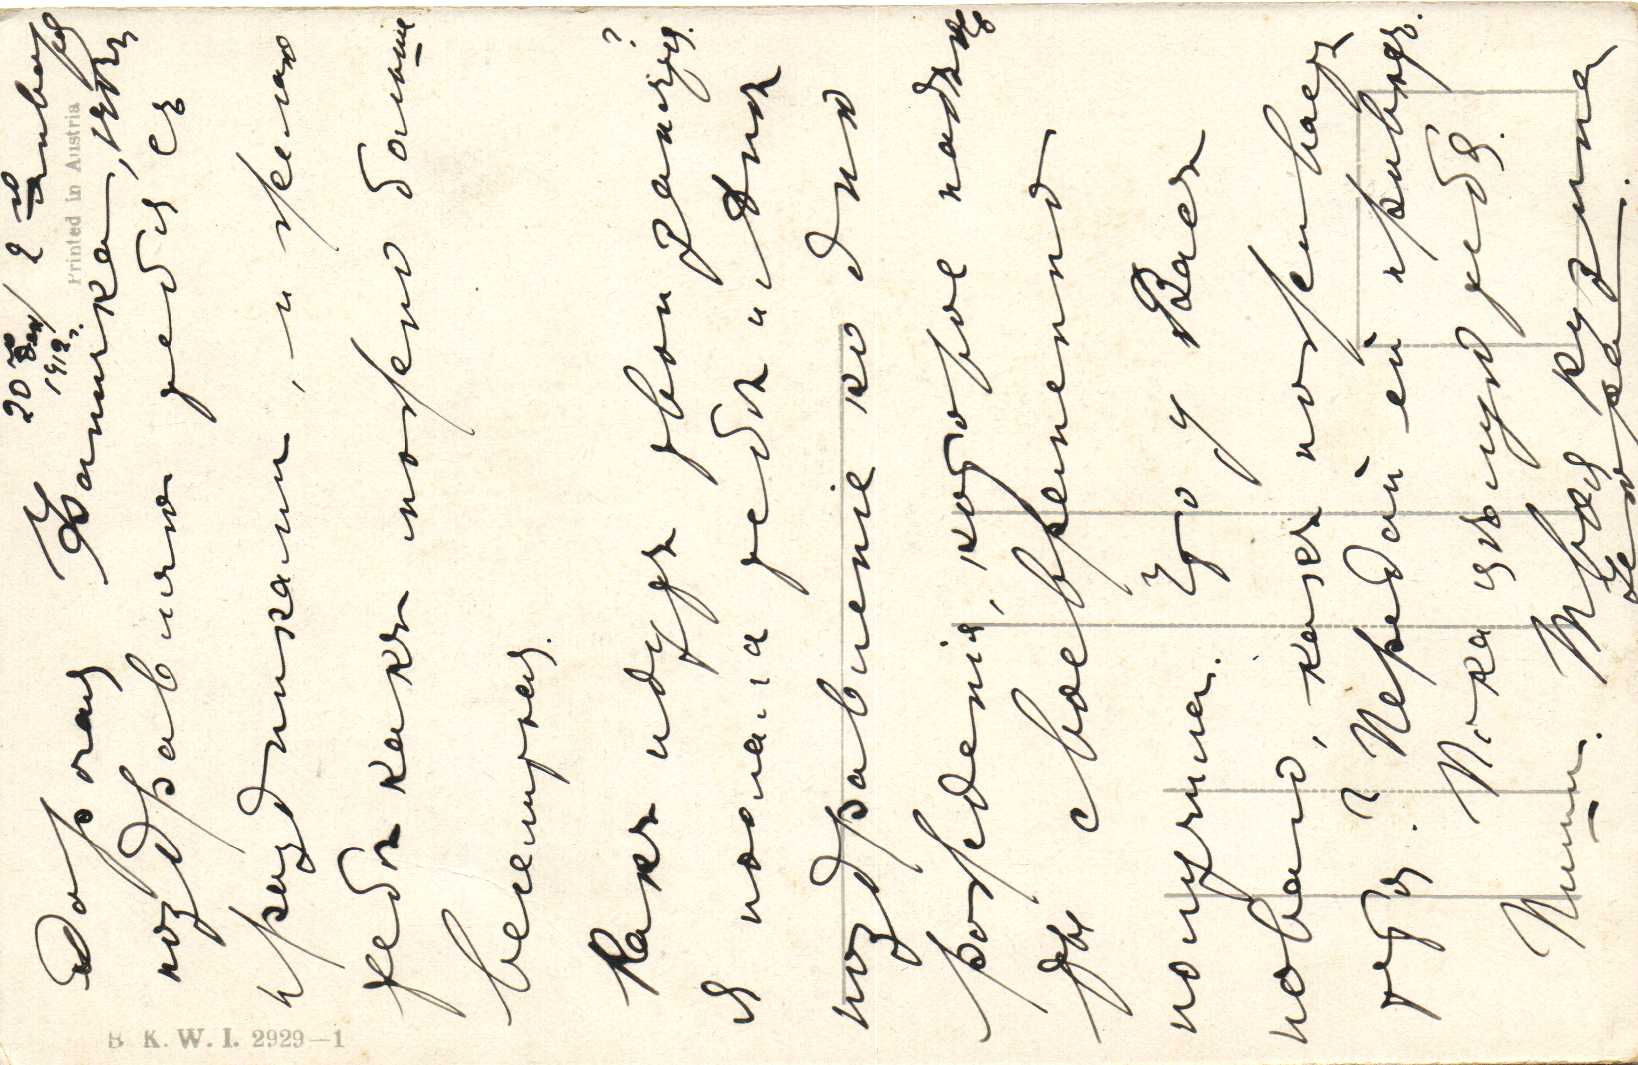 20го Дек/ 2го Января
1912г.
Дорогая Женичка, шлю
поздравляю тебя съ
праздниками, и желаю
тебѣ какъ можно болѣе
веселиться.
Какъ идутъ твои занятія?
Я послала тебѣ и Анѣ
поздравленіе ко дню
рожденія, которое надѣюсь
Вы своевременно
получили. Что у Васъ
новаго, какъ поживаетъ
тетя? Передай ей привѣтъ.
Пока цѣлую тебя.
Пиши. Твоя кузина
Printed in Austria
B. K. W. I. 2929—1